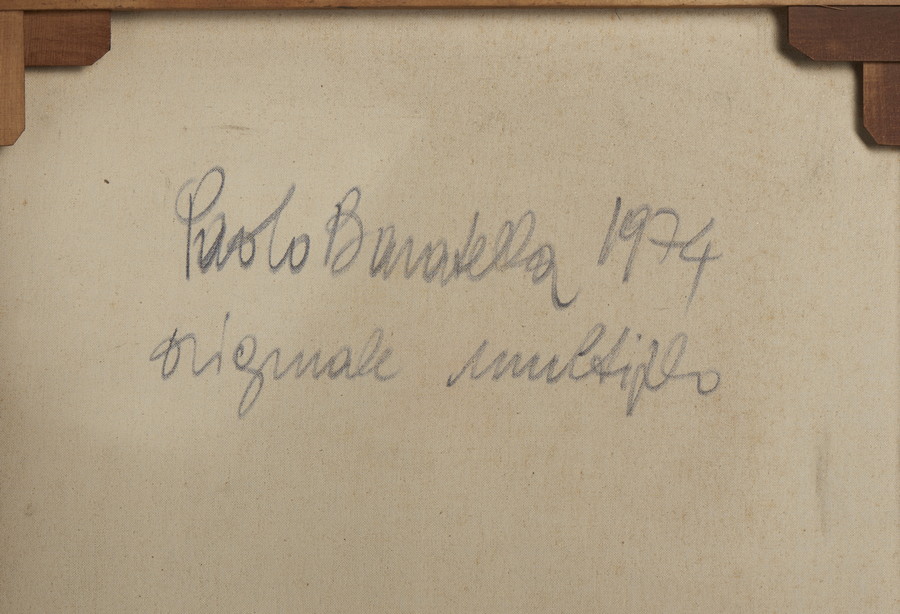 Paolo Baratella 1974
originale multiplo